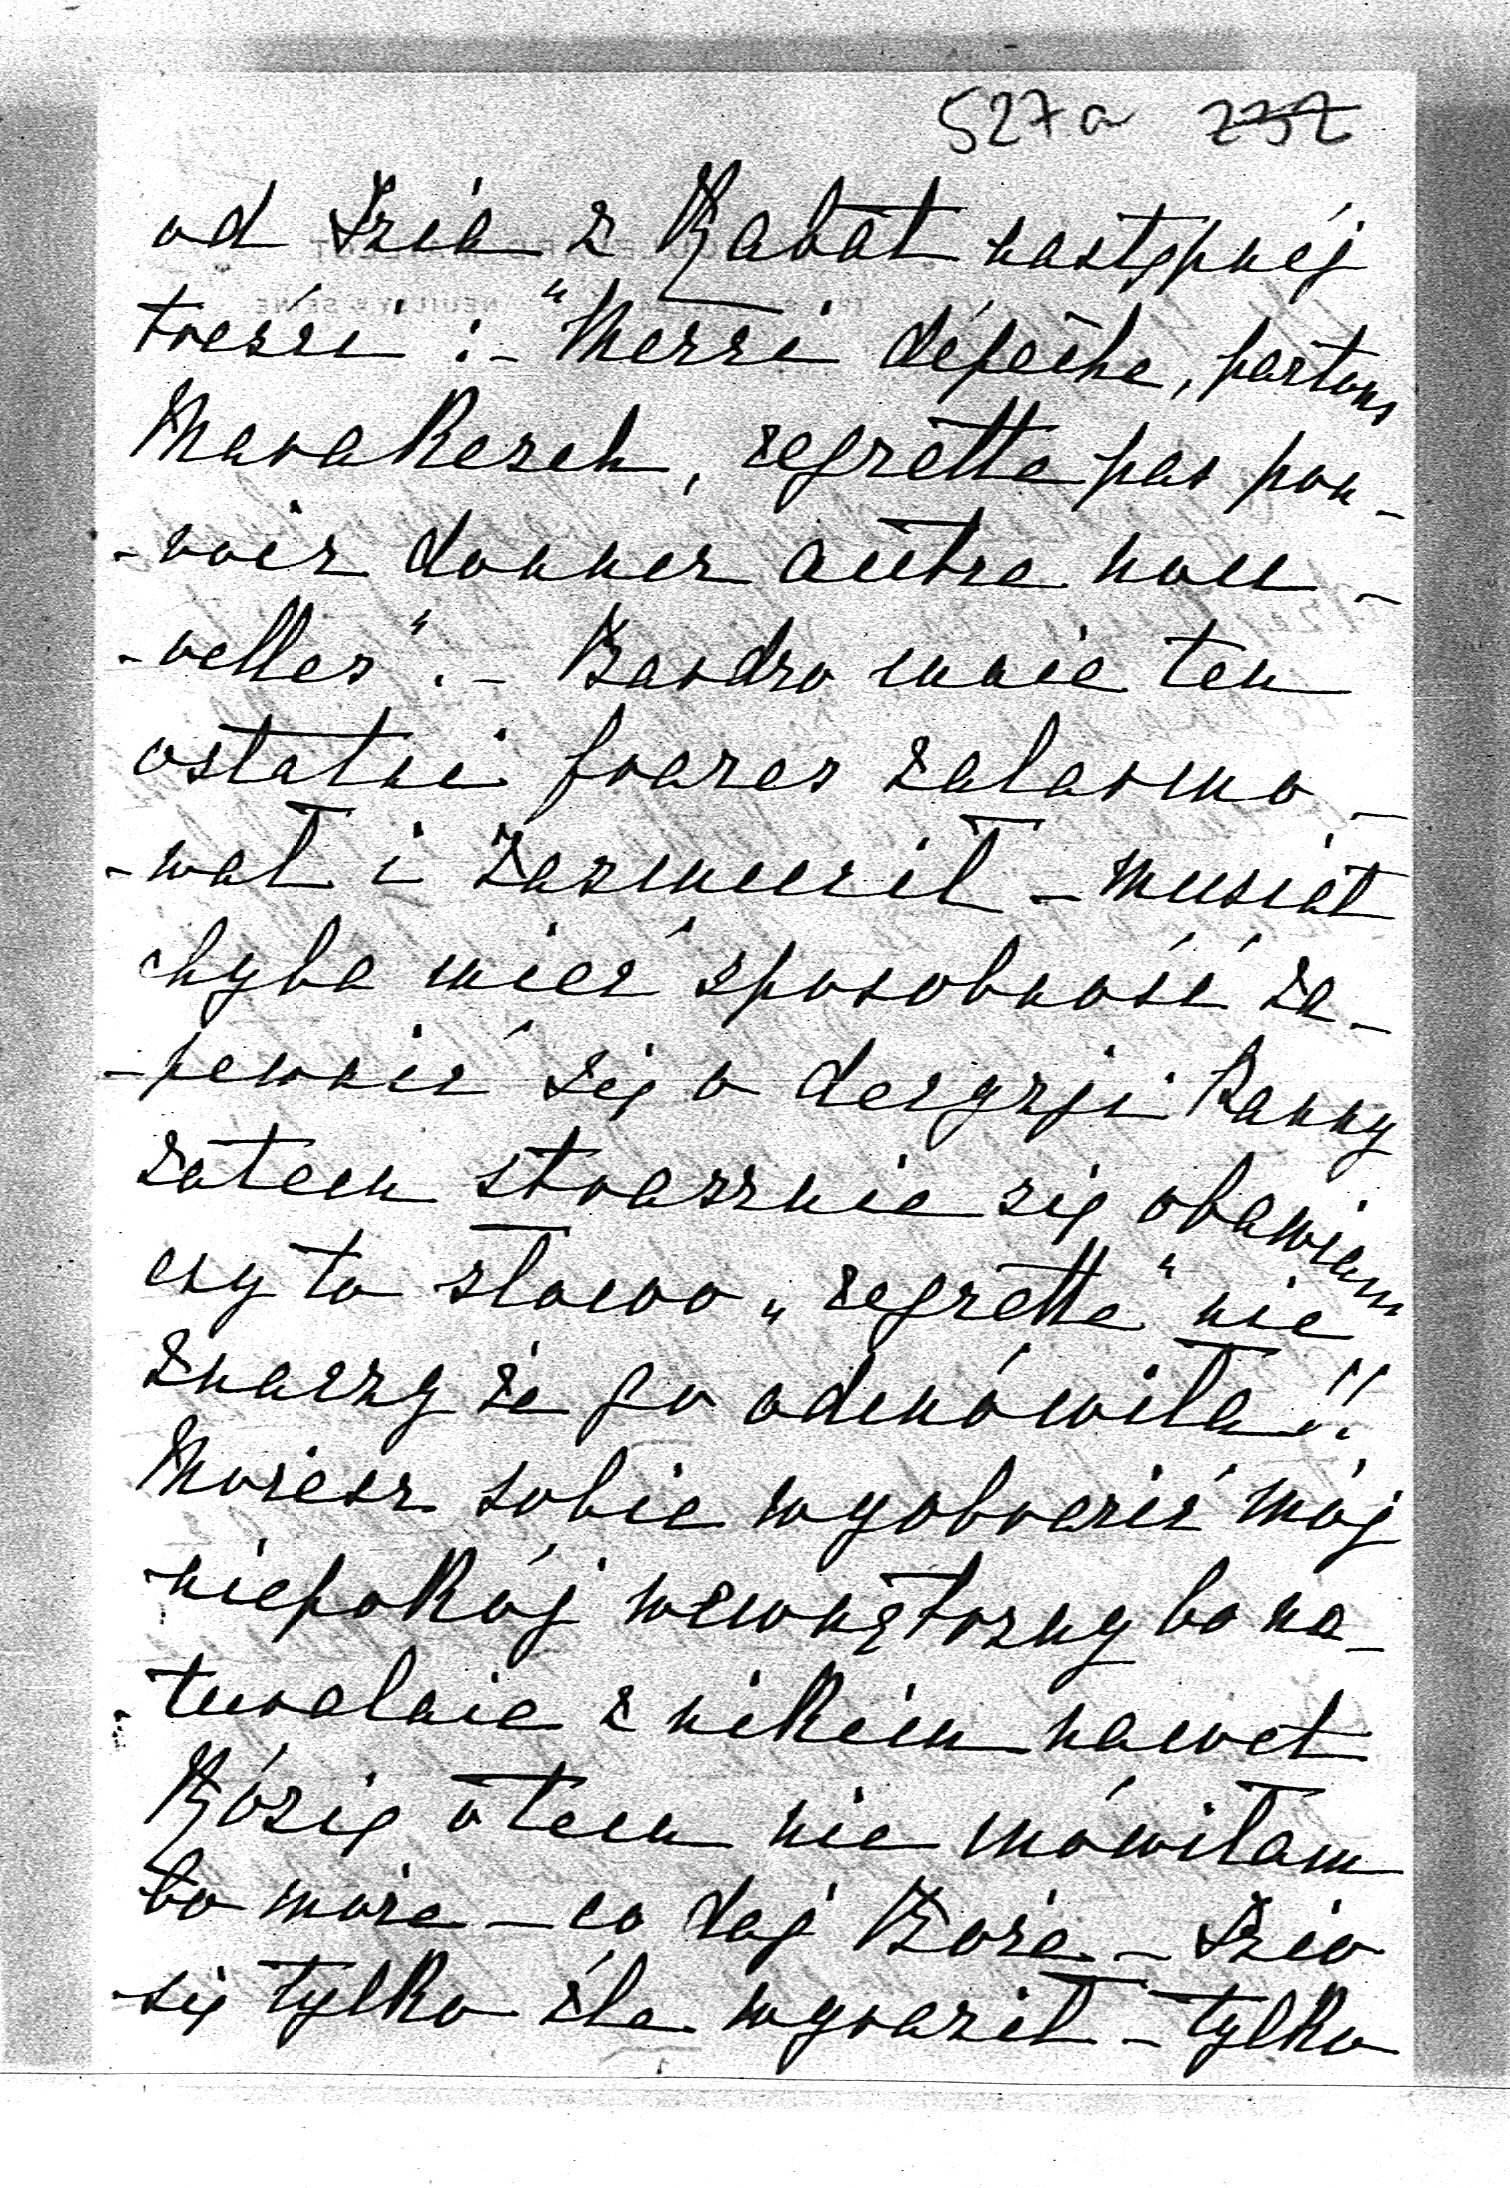 527a 237
od Izia z Rabat następnéj
treści :- "Merci dépêche, partons
Marakesch, regrette pas pou-
-voir donner autre nou-
-velles".- Bardzo mnie ten
ostatni frazes zalarmo-
-wał i zasmucił - musiał
chyba mieć sposobność za-
-pewnić się o decyzji Panny
zatem strasznie się obawiam
czy to słowo "regrette" nie
znaczy że go odmówiła!!
Możesz sobie wyobrazić mój
niepokój wewnętrzny bo na-
turalnie z nikim nawet
Rózię o tem nie mówiłam
bo może - co daj Boże - Izio
się tylko źle wyraził - tylko